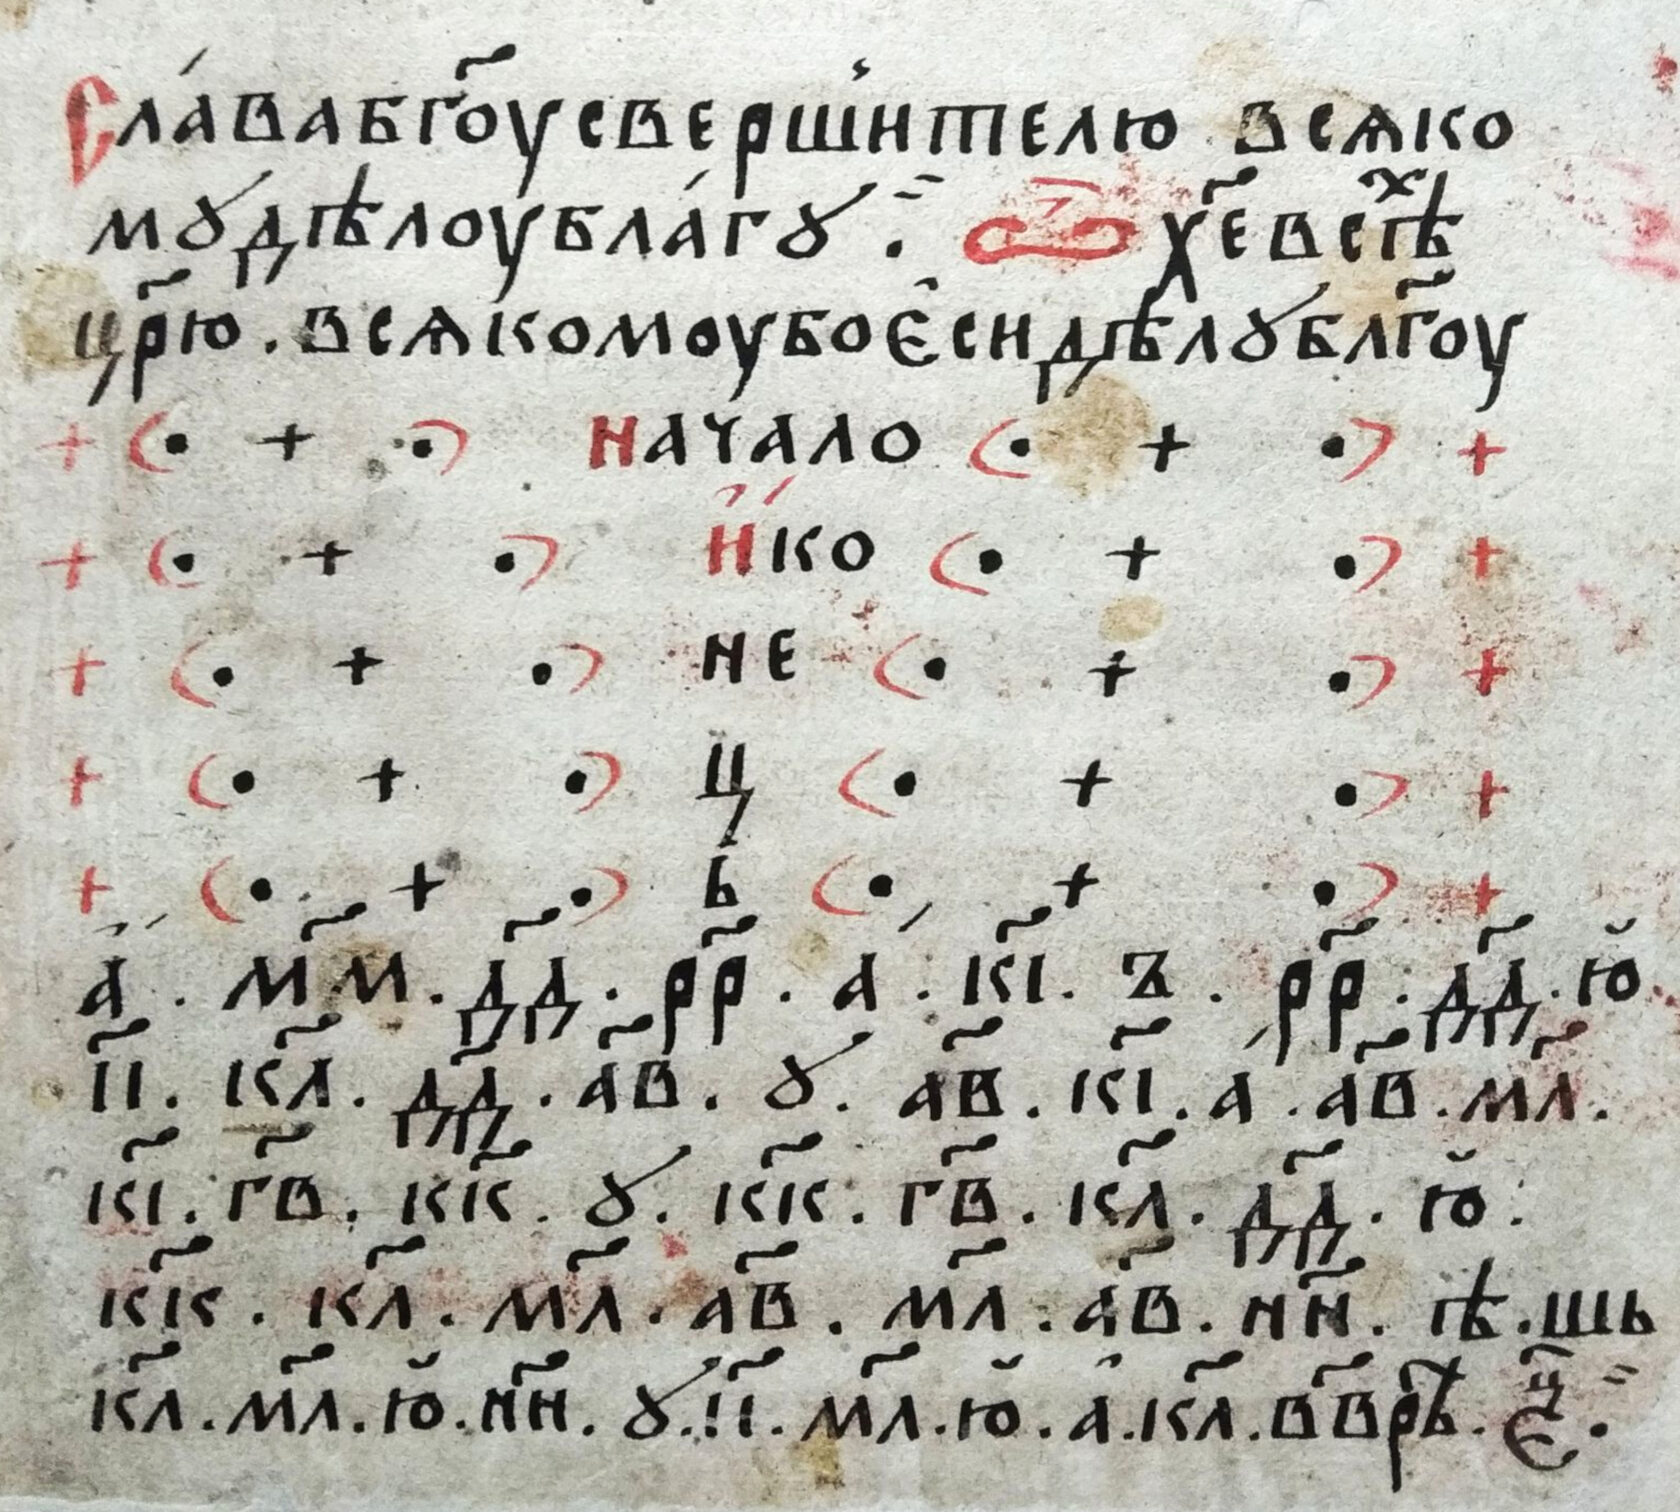 Сла́ва бг҃оу сверши́телю всѧко
мꙋ дѣлоу бла́гꙋ. х҃е всѣⷯ
цр҃ю. всѧкомоу бо є̂си дѣлꙋ бл҃гоу
+ ( • + • ) Начало ( • + • ) +
+ ( • + • ) И҆́ко ( • + • ) +
+ ( • + • ) не ( • + • ) +
+ ( • + • ) ц ( • + • ) +
+ ( • + • ) ь ( • + • ) +
а҆́. м҃м. д҃д. р҃р. а́. к҃і. ꙁ. р҃р. д҃д. ю̆
і҃і. к҃л. д҃д. а҃в. ꙋ. а҃в. к҃і. а́. а҃в. м҃л.
к҃і. г҃в. к҃к. ꙋ. к҃к. г҃в. к҃л. д҃д. ю̆.
к҃к. к҃л. м҃л. а҃в. м҃л. а҃в. н҃н. ѣ. шь
к҃л. м҃л. ю̆. н҃н. ꙋ. і҃і. м҃л. ю̆. а̂. к҃л. в҃в рѣ.